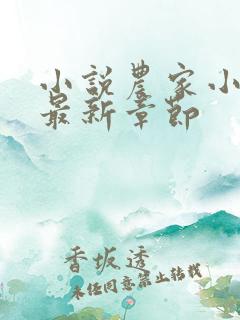 小說農家小
最新章節
香坂透
未經同意禁止轉載